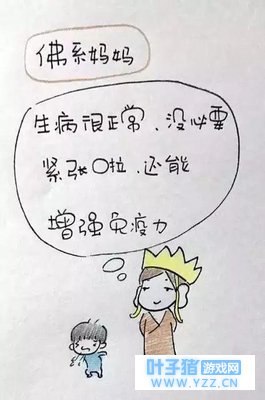 佛系妈妈
生病很正常、没必要
紧张〇拉、还能
增强免疫力
叶子猪游戏网
WWW.YZZ.CN